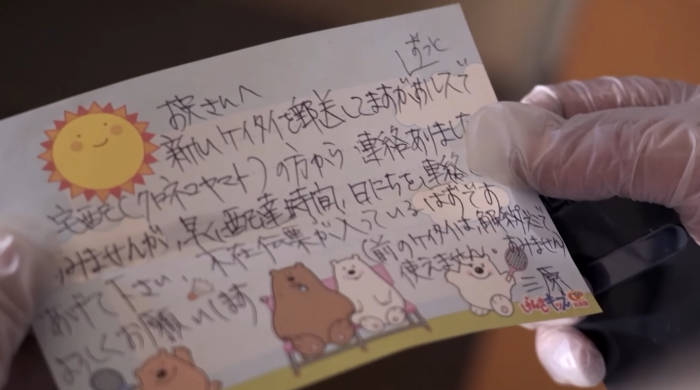 お父さんへ
新しいケイタイを郵送してますがおルスで
宅配(クロネコヤマト)の方から 連絡ありました
すみませんが、早く配達時間、日にちを連絡
不在伝票が入っているはずです
あげて下さい
(前のケイタイは、解約で
使えません
よろしくお願いします
三原